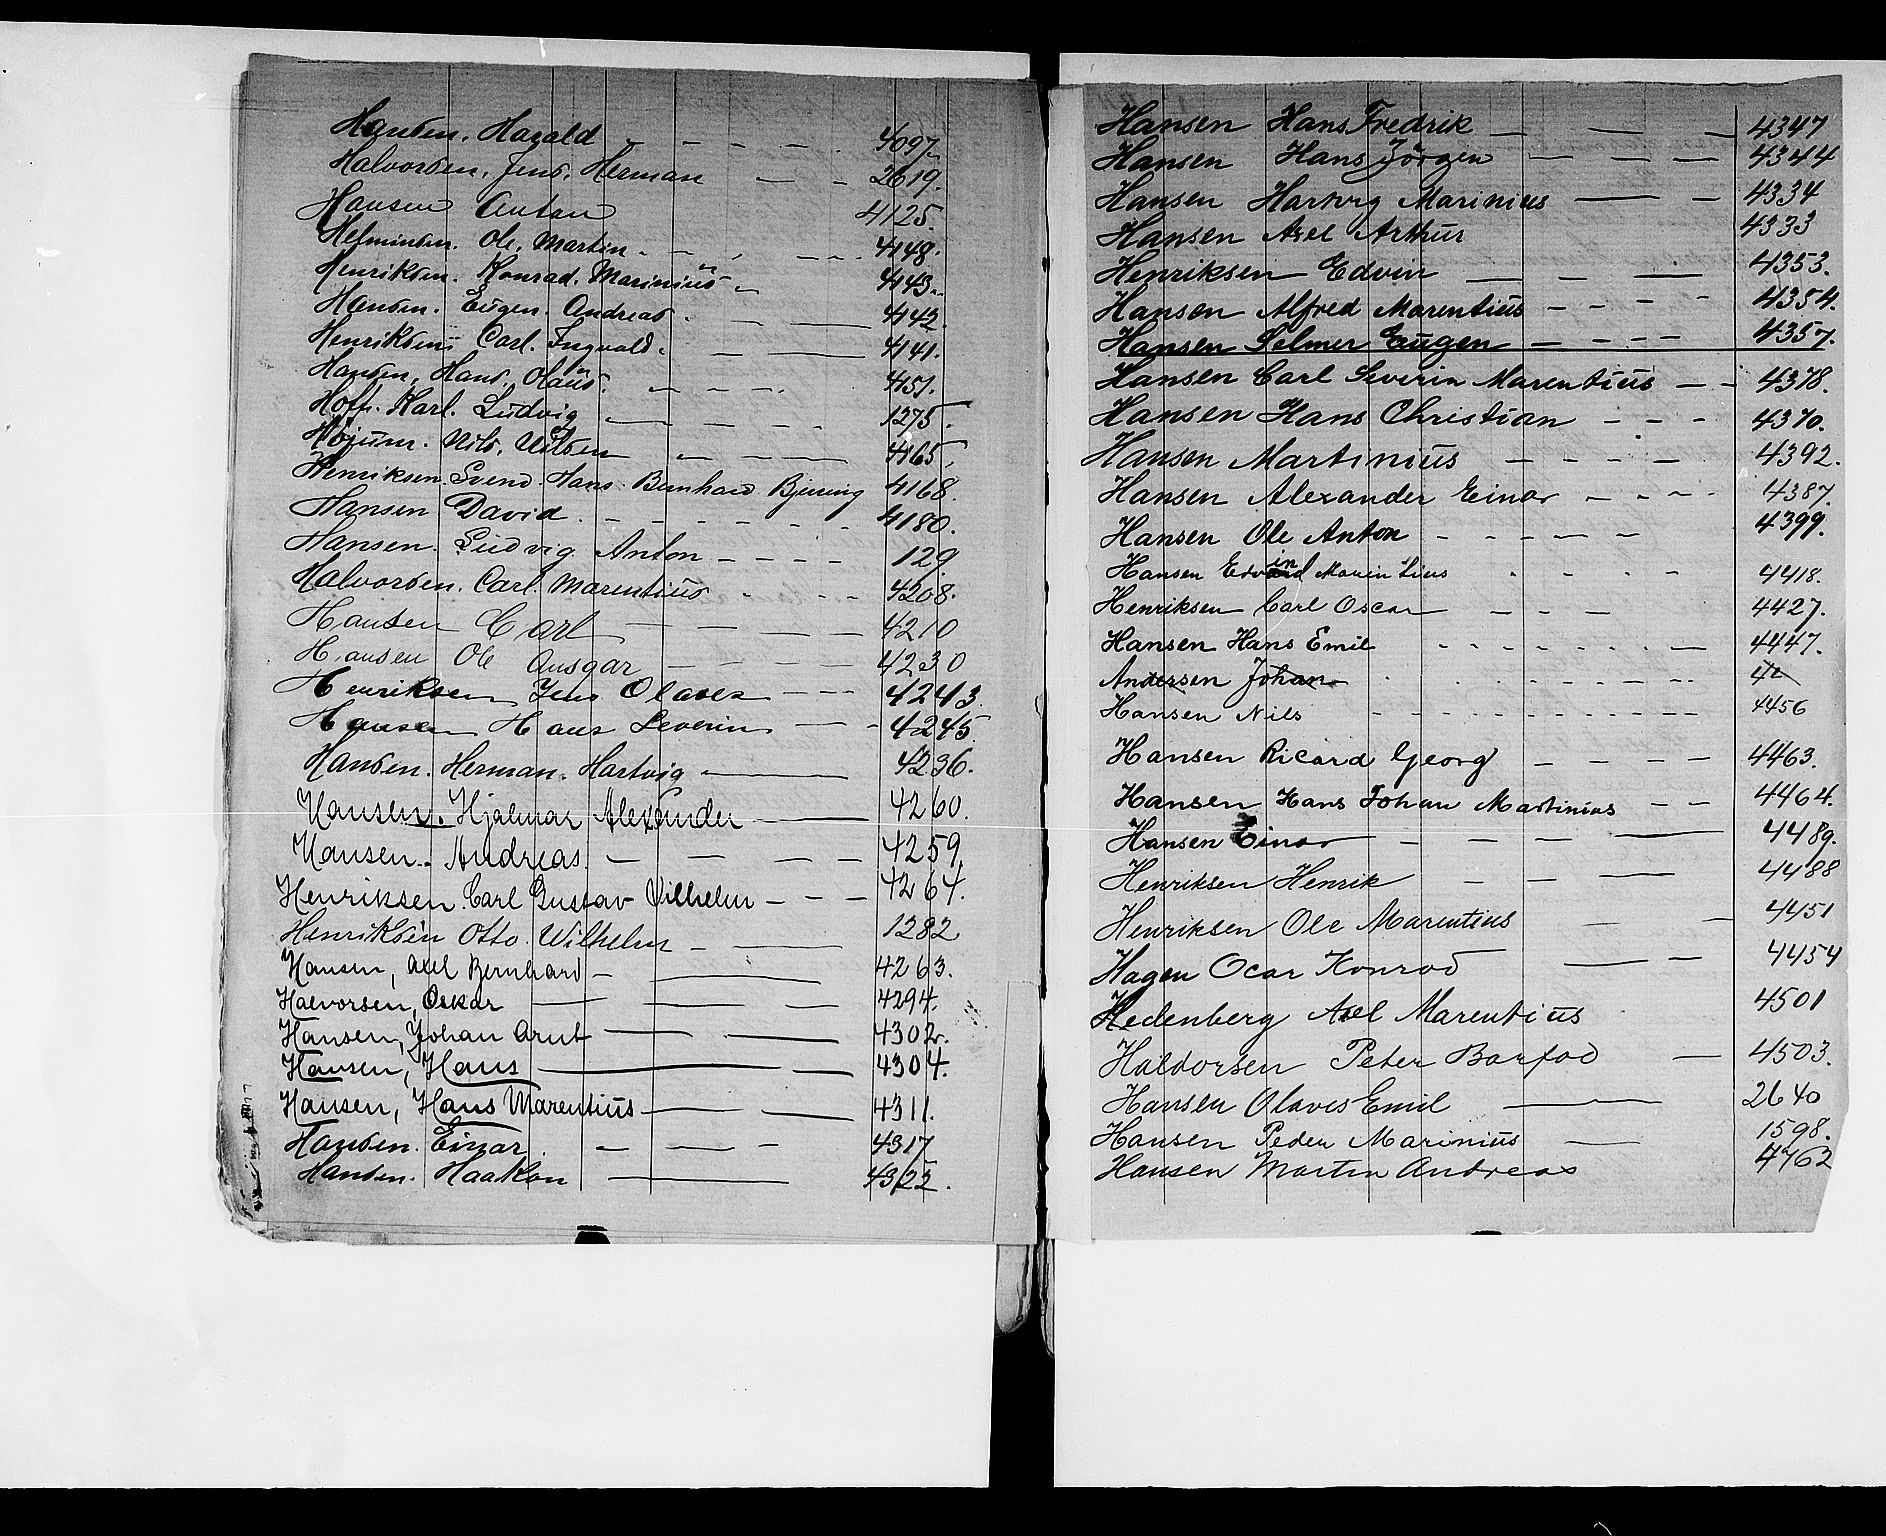 Hansen. Harald 4097.
Halvorsen. Jens. Herman 2619.
Hansen Anton 4125.
Helminsen. Ole. Martin. 4148.
Henriksen. Konrad. Marinius 4143.
Hansen. Eugen. Andreas. 4142.
Henriksen Carl. Ingvald. 4141.
Hansen, Hans. Olaüs. 4151.
Hoff. Karl. Ludvig 1275.
Höjum. Nils. Nilsen 4165.
Henriksen. Svend. Hans. Bernhard Bjering 4168.
Hansen David. 4180.
Hansen. Ludvig Anton 129
Halvorsen. Carl. Marentius 4208.
Hansen Carl 4210
Hansen Ole Ansgar 4230
Henriksen Jens Olaves 4243.
Hansen Hans Severin 4245
Hansen. Herman. Hartvig 4236.
Hansen. Hjalmar Alexander 4260.
Hansen. Andreas. 4259
Henriksen. Carl Gustav Vilhelm 4264.
Henriksen Otto. Wilhelm 1282
Hansen, Axel Bernhard 4263.
Halvorsen, Oskar 4294.
Hansen, Johan Arnt 4302.
Hansen, Hans 4304.
Hansen, Hans Marentius 4311.
Hansen. Einar. 4317
Hansen. Haakon 4322.
Hansen Hans Fredrik 4347
Hansen Hans Jörgen 4344
Hansen Hartvig Marinius 4334
Hansen Axel Arthur 4333
Henriksen Edvin 4353.
Hansen Alfred Marentius 4354.
Hansen Selmer Eugen 4357.
Hansen Carl Severin Marentius 4378.
Hansen Hans Christian 4370.
Hansen Martinius 4392.
Hansen Alexander Einar 4387.
Hansen Ole Anton 4399.
Hansen Edvin Marintius 4418.
Henriksen Carl Oscar 4427.
Hansen Hans Emil 4447.
Andersen Johan
Hansen Nils 4456
Hansen Ricard Georg 4463.
Hansen Hans Johan Martinius 4464.
Hansen Einar 4489.
Henriksen Henrik 4488
Henriksen Ole Marentius 4451
Hagen Ocar Konrad 4454
Hedenberg Axel Marentius 4501
Haldorsen Peter Barfod 4503.
Hansen Olaves Emil 2640
Hansen Peder Marinius 1598.
Hansen Martin Andreas 4762